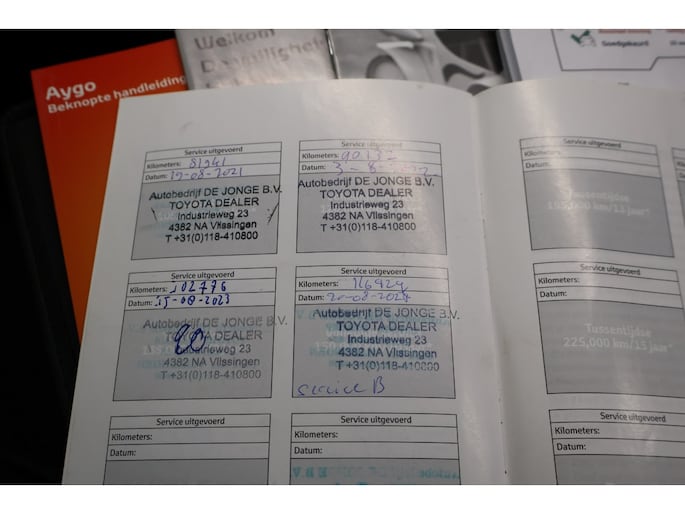 Aygo
Beknopte handleiding
Welkom
Goedgekeurd
Service uitgevoerd
Kilometers: 81941
Datum: 19-08-2021
Autobedrijf DE JONGE B.V.
TOYOTA DEALER
Industrieweg 23
4382 NA Vlissingen
T +31(0)118-410800
Service uitgevoerd
Kilometers:
Datum:
Autobedrijf DE JONGE B.V.
TOYOTA DEALER
Industrieweg 23
4382 NA Vlissingen
T +31(0)118-410800
Service uitgevoerd
Kilometers: 102776
Datum: 15-08-2023
Autobedrijf DE JONGE B.V.
TOYOTA DEALER
Industrieweg 23
4382 NA Vlissingen
T +31(0)118-410800
Service uitgevoerd
Kilometers:
Datum:
Autobedrijf DE JONGE B.V.
TOYOTA DEALER
Industrieweg 23
4382 NA Vlissingen
T +31(0)118-410800
service B
Service uitgevoerd
Kilometers:
Datum:
Service uitgevoerd
Kilometers:
Datum:
Service uitgevoerd
Kilometers:
Datum:
Tussentijdse
195,000 km/13 jaar*
Service uitgevoerd
Kilometers:
Datum:
Tussentijdse
225,000 km/15 jaar*
Service uitgevoerd
Kilometers:
Datum: